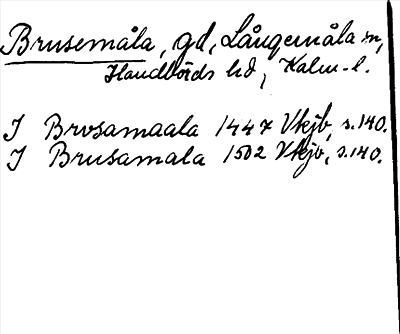 Brusemåla, gd, Långemåla sn,
Handbörds hd, Kalm. l.
J Brvsamaala 1447 Vkjb, s.140.
J Brusamala 1502 Vkjb, s.140.